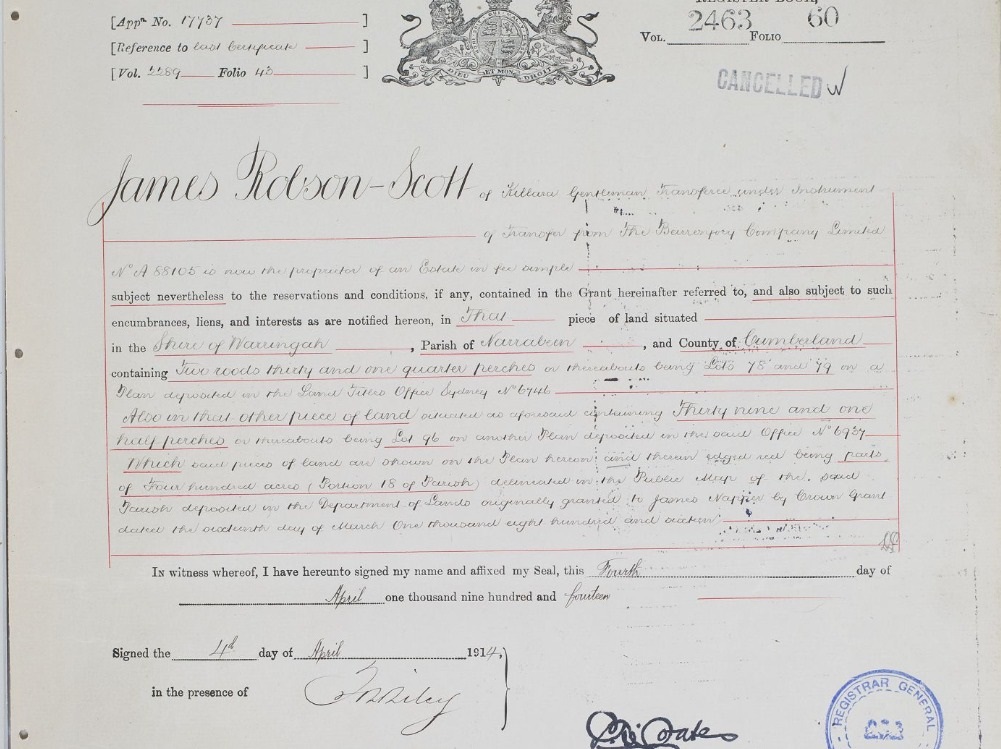 [Appn. No. 17737 ]
[Reference to Last Certificate ]
[Vol. 2289 Folio 43 ]
REGISTER BOOK,
VOL. 2463 FOLIO 60
DIEU ET MON DROIT
CANCELLED
James Robson-Scott of Killara Gentleman Transferee under Instrument
of Transfer from The Company Limited
No. A 88105 is now the proprietor of an Estate in fee simple
subject nevertheless to the reservations and conditions, if any, contained in the Grant hereinafter referred to, and also subject to such
encumbrances, liens, and interests as are notified hereon, in That piece of land situated
in the Shire of Warringah, Parish of Narrabeen, and County of Cumberland
containing Two roods thirty and one quarter perches or thereabouts being Lots 78 and 79 on a
Plan deposited in the Land Titles Office Sydney No. 6746
Also in that other piece of land situated as aforesaid containing Thirty nine and one
half perches or thereabouts being Lot 96 on another Plan deposited in the said Office No. 6937
Which said pieces of land are shown on the Plan hereon and therein edged red being parts
of Four hundred acres (Portion 18 of Parish) delineated in the Public Map of the said
Parish deposited in the Department of Lands originally granted to James Napper by Crown Grant
dated the sixteenth day of March One thousand eight hundred and sixteen
In witness whereof, I have hereunto signed my name and affixed my Seal, this Fourth day of
April one thousand nine hundred and fourteen
Signed the 4th day of April 1914,
in the presence of
REGISTRAR GENERAL